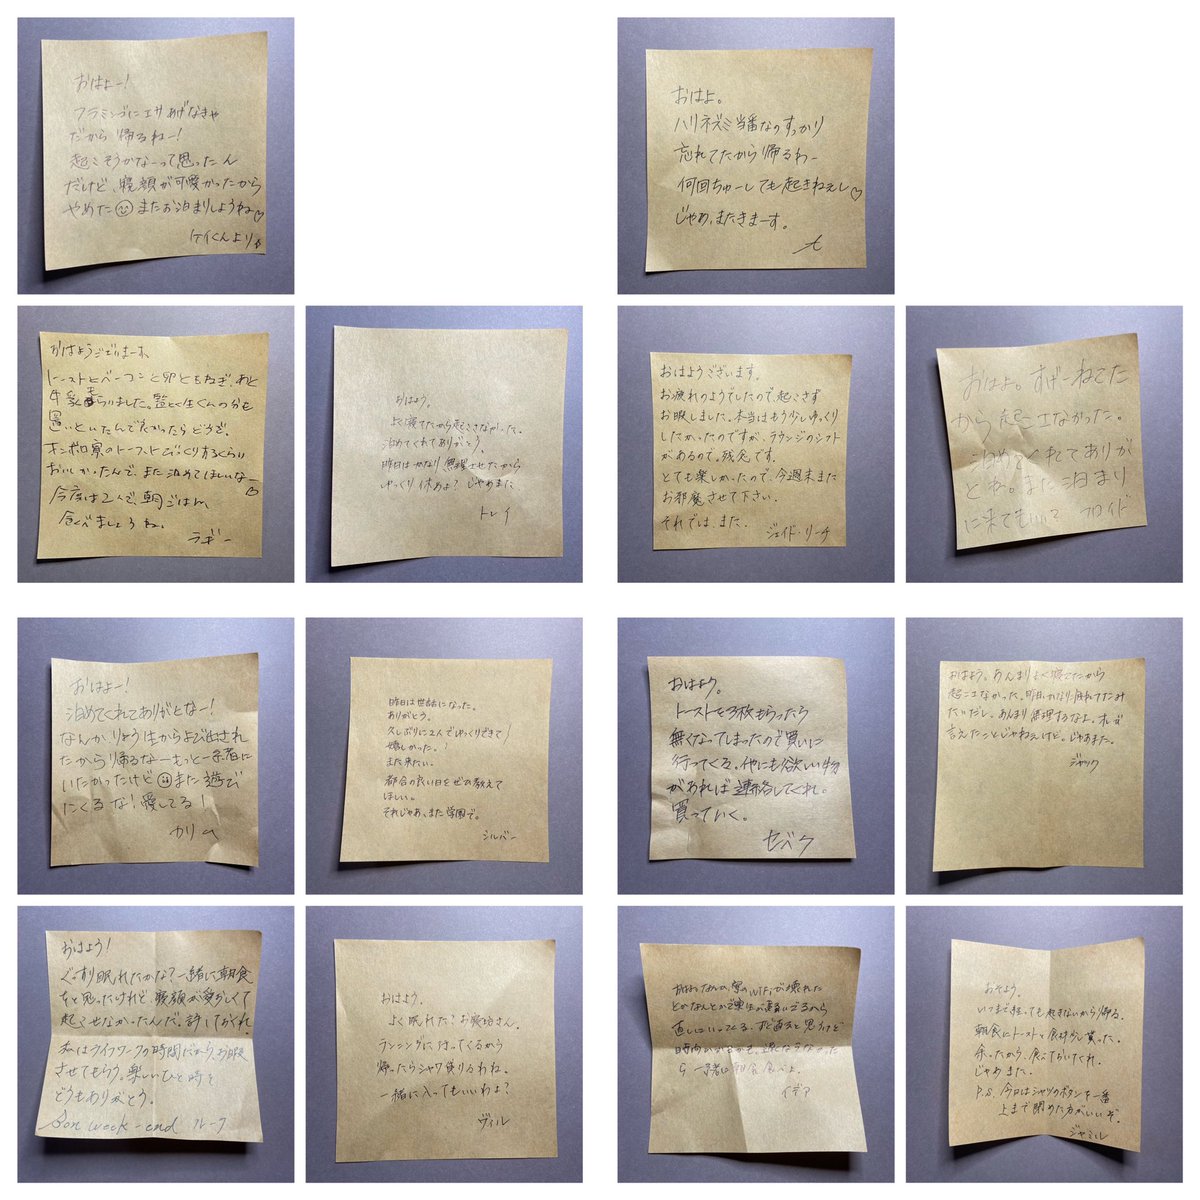 おはよー!
フラミンゴにエサあげなきゃ
だから帰るねー!
起こそうかなーって思ったん
だけど、寝顔が可愛かったから
やめた またお泊まりしようね♡
ケイくんより
おはよ。
ハリネズミ当番なのすっかり
忘れてたから帰るわー
何回ちゅーしても起きねえし♡
じゃあ、またきまーす。
おはようございまーす。
トーストとベーコンと卵と玉ねぎ、あと
牛乳もらいました。監とく生くんの分も
置いといたんでよかったらどうぞ。
オンボロ寮のトーストびっくりするくらい
おいしかったんで、また泊めてほしいなー
今度は2人で、朝ごはん
食べましょうね。
ラギー
おはよう。
よく寝てたから起こさなかった。
泊めてくれてありがとう。
昨日はかなり無理させたから
ゆっくり休めよ? じゃあまた
トレイ
おはようございます。
お疲れのようでしたので、起こさず
お暇しました。本当はもう少しゆっくり
したかったのですが、ラウンジのシフト
があるので。残念です。
とても楽しかったので、今週末また
お邪魔させて下さい。
それでは、また。
ジェイド・リーチ
おはよ。すげーねてた
から起こさなかった。
泊めてくれてありが
とね。また泊まり
に来てもいい?
フロイド
おはよー!
泊めてくれてありがとなー!
なんか、りょう生からよび出され
たから帰るなーもっと一緒に
いたかったけど また遊び
にくるな!愛してる!
カリム
昨日は世話になった。
ありがとう。
久しぶりに2人でゆっくりできて
嬉しかった。
また来たい。
都合の良い日をぜひ教えて
ほしい。
それじゃあ、また学園で。
シルバー
おはよう。
トーストを3枚もらったら
無くなってしまったので買いに
行ってくる。他にも欲しい物
があれば連絡してくれ。
買っていく。
セベク
おはよう。あんまりよく寝てたから
起こさなかった。昨日、かなり疲れてたみ
たいだし、あんまり無理するなよ。オレが
言えたことじゃねえけど。じゃあまた。
ジャック
おはよう!
ぐっすり眠れたかな?一緒に朝食
をと思ったけれど、寝顔が愛らしくて
起こせなかったんだ。許しておくれ。
私はライフワークの時間だから、お暇
させてもらう。楽しいひと時を
どうもありがとう。
Bon week-end ルーク
おはよう。
よく眠れた?お寝坊さん。
ランニングに行ってくるから
帰ったらシャワー借りるわね。
一緒に入ってもいいわよ?
ヴィル
おはよ。なんか、寮のWiFiが壊れた
とかなんとかで寮生が騒いでるから
直しにいってくる。すぐ直ると思うけど
時間かかるかも。遅くならなかった
ら一緒に朝食食べよ。
イデア
おそよう。
いつまで経っても起きないから帰る。
朝食にトーストと食材少し貰った。
余ったから、食べておいてくれ。
じゃあまた。
P.S. 今日はシャツのボタンを一番
上まで閉めた方がいいぞ。
ジャミル